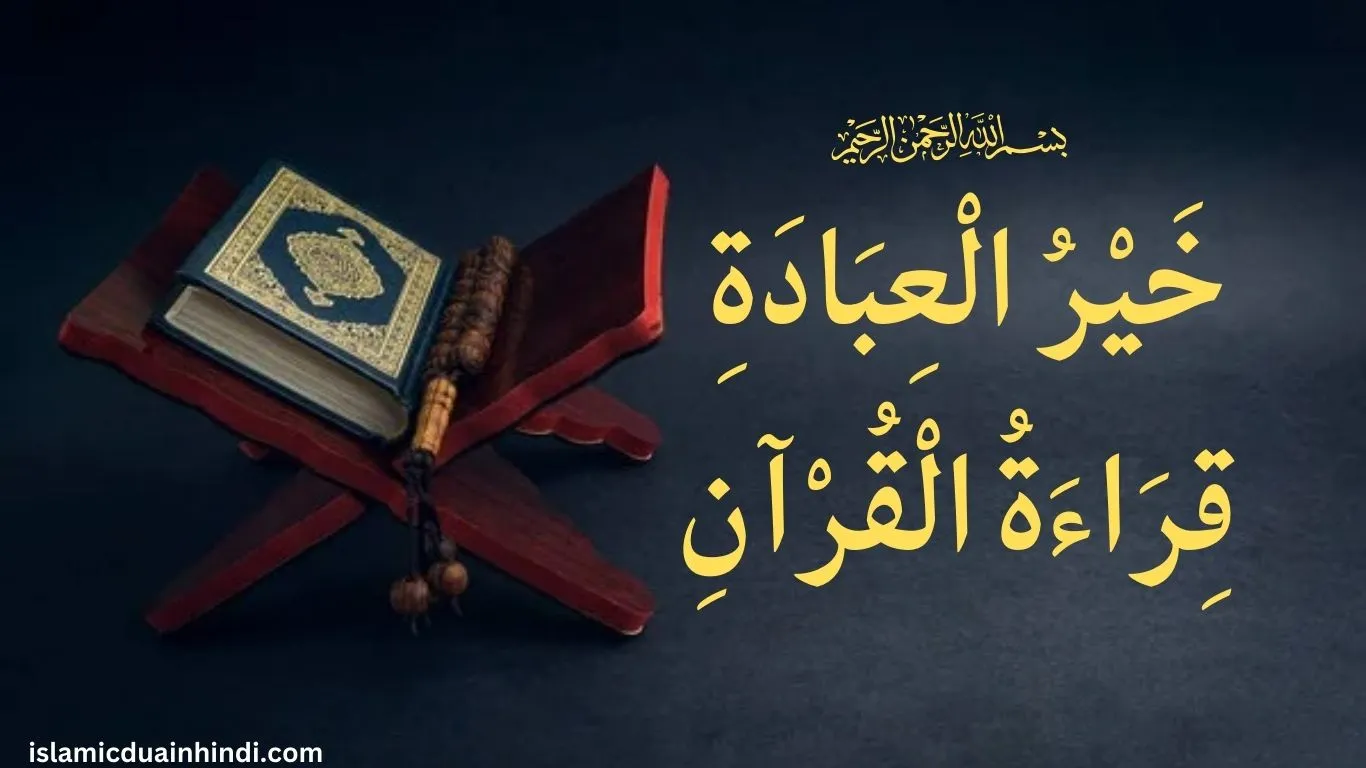 بسم الله الرحمن الرحيم
خَيْرُ الْعِبَادَةِ
قِرَاءَةُ الْقُرْآنِ
islamicduainhindi.com